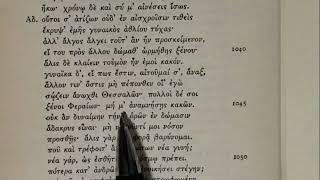 ἥκω· χρόνῳ δὲ καὶ σύ μ' αἰνέσεις ἴσως.
Αδ. οὔτοι σ' ἀτίζων οὐδ' ἐν αἰσχροῖσιν τιθεὶς
ἔκρυψ' ἐμῆς γυναικὸς ἀθλίου τύχας·
ἀλλ' ἄλγος ἄλγει τοῦτ' ἂν ἦν προσκείμενον,
εἴ του πρὸς ἄλλου δώμαθ' ὡρμήθης ξένου· 1040
ἅλις δὲ κλαίειν τοὐμὸν ἦν ἐμοὶ κακόν.
γυναῖκα δ', εἴ πως ἔστιν, αἰτοῦμαί σ', ἄναξ,
ἄλλον τιν' ὅστις μὴ πέπονθεν οἷ' ἐγὼ
σῴζειν ἄνωχθι Θεσσαλῶν· πολλοὶ δέ σοι
ξένοι Φεραίων· μή μ' ἀναμνήσῃς κακῶν. 1045
οὐκ ἂν δυναίμην τήνδ' ὁρῶν ἐν δώμασιν
ἄδακρυς εἶναι· μὴ νοσοῦντί μοι νόσον
προσθῇς· ἅλις γὰρ συμφορᾷ βαρύνομαι.
ποῦ καὶ τρέφοιτ' ἂν δωμάτων νέα γυνή;
νέα γάρ, ὡς ἐσθῆτι καὶ κόσμῳ πρέπει. 1050
πότερα κατ' ἀνδρῶν δῆτ' ἐνοικήσει στέγην;